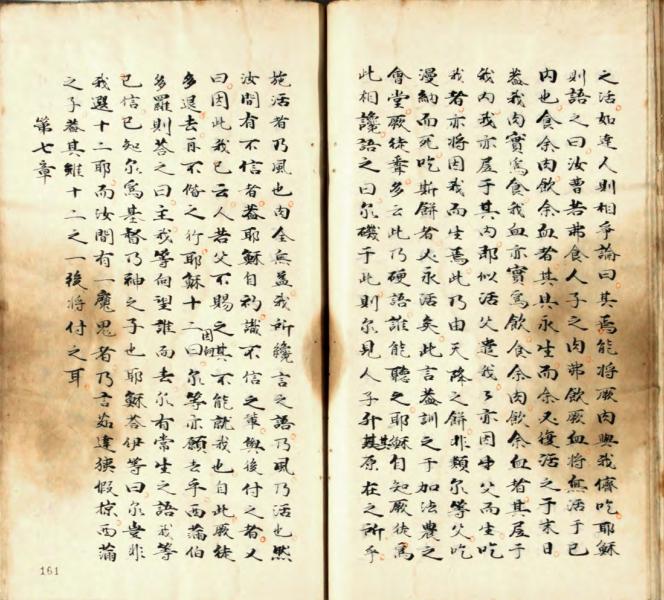 之活如達人則相爭論曰其焉能將厥肉與我儕吃耶穌
則語之曰汝曹若弗食人子之肉弗飲厥血將無活于己
內也食余肉飲余血者其具永生而余又復活之于末日
蓋我肉實為食我血亦實為飲食余肉飲余血者其居于
我內我亦居于其內即似活父遣我我亦因父而生吃
我者亦將因我而生焉此乃由天降之餅非類尔等父吃
漫納而死吃斯餅者必永活矣此言蓋訓之于加法農之
會堂厥徒群多云此乃硬語誰能聽之耶穌自知厥徒為
此相讒語之曰尔磯于此則尔見人子升其原在之所乎
施活者乃風也肉全無益我所纔言之語乃風乃活也然
汝間有不信者蓋耶穌自初識不信之輩與後付之者又
曰因此我已云人若父不賜之其不能就我也自此厥徒
多退去而不偕之行耶穌因向十二曰尔等亦願去乎西蒲伯
多羅則答之曰主我等向望誰而去尔有常生之語我等
已信已知尔為基督乃神之子也耶穌答伊等曰尔豈非
我選十二耶而汝間有一魔鬼者乃言茹達狹假掠西蒲
之子蓋其雖十二之一後將付之耳
第七章
161